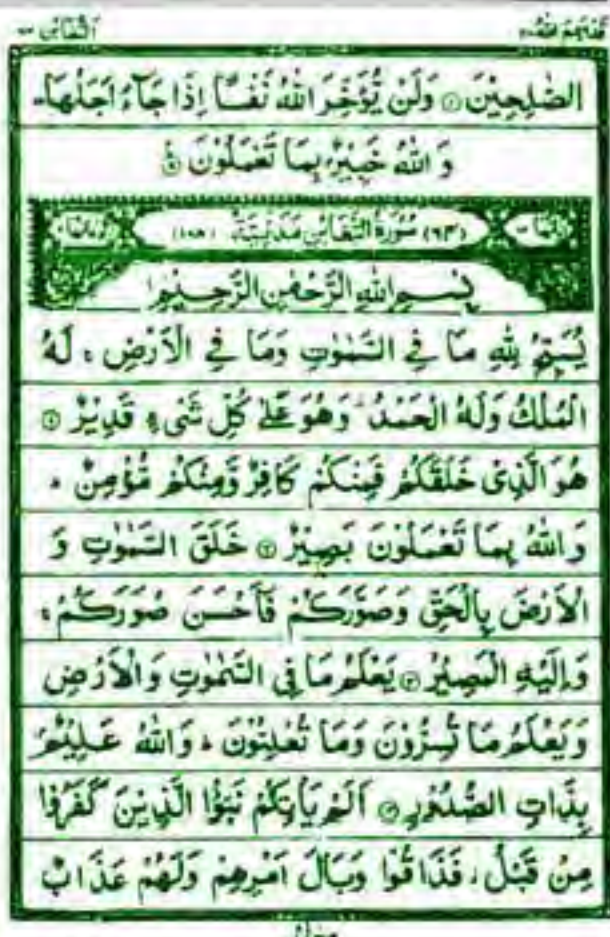 التغابن ٦٤ قد سمع الله ٢٨
الصّٰلِحِيْنَ ۝ وَلَنْ يُّؤَخِّرَ اللّٰهُ نَفْسًا اِذَا جَآءَ اَجَلُهَا ؕ
وَ اللّٰهُ خَبِيْرٌۢ بِمَا تَعْمَلُوْنَ ۝
(٦٤) سُوْرَةُ التَّغَابُنِ مَدَنِيَّةٌ (١٠٨)
بِسْمِ اللّٰهِ الرَّحْمٰنِ الرَّحِيْمِ
يُسَبِّحُ لِلّٰهِ مَا فِي السَّمٰوٰتِ وَمَا فِي الْاَرْضِ ۚ لَهُ
الْمُلْكُ وَلَهُ الْحَمْدُ ۚ وَهُوَ عَلٰى كُلِّ شَيْءٍ قَدِيْرٌ ۝١
هُوَ الَّذِيْ خَلَقَكُمْ فَمِنْكُمْ كَافِرٌ وَّمِنْكُمْ مُّؤْمِنٌ ؕ
وَاللّٰهُ بِمَا تَعْمَلُوْنَ بَصِيْرٌ ۝٢ خَلَقَ السَّمٰوٰتِ وَ
الْاَرْضَ بِالْحَقِّ وَصَوَّرَكُمْ فَاَحْسَنَ صُوَرَكُمْ ۚ
وَاِلَيْهِ الْمَصِيْرُ ۝٣ يَعْلَمُ مَا فِي السَّمٰوٰتِ وَالْاَرْضِ
وَيَعْلَمُ مَا تُسِرُّوْنَ وَمَا تُعْلِنُوْنَ ؕ وَاللّٰهُ عَلِيْمٌۢ
بِذَاتِ الصُّدُوْرِ ۝٤ اَلَمْ يَاْتِكُمْ نَبَؤُا الَّذِيْنَ كَفَرُوْا
مِنْ قَبْلُ ؗ فَذَاقُوْا وَبَالَ اَمْرِهِمْ وَلَهُمْ عَذَابٌ